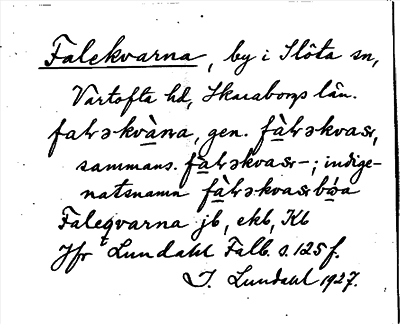 Falekvarna, by i Slöta sn,
Vartofta hd, Skaraborgs län.
faləkvàna, gen. fàləkvar,
sammans. fàləkvar-; indige-
natsnamn fàləkvarbòa
Faleqvarna jb, ekb, Kb
Jfr Lundahl Falb. s. 125 f.
I. Lundahl 1927.